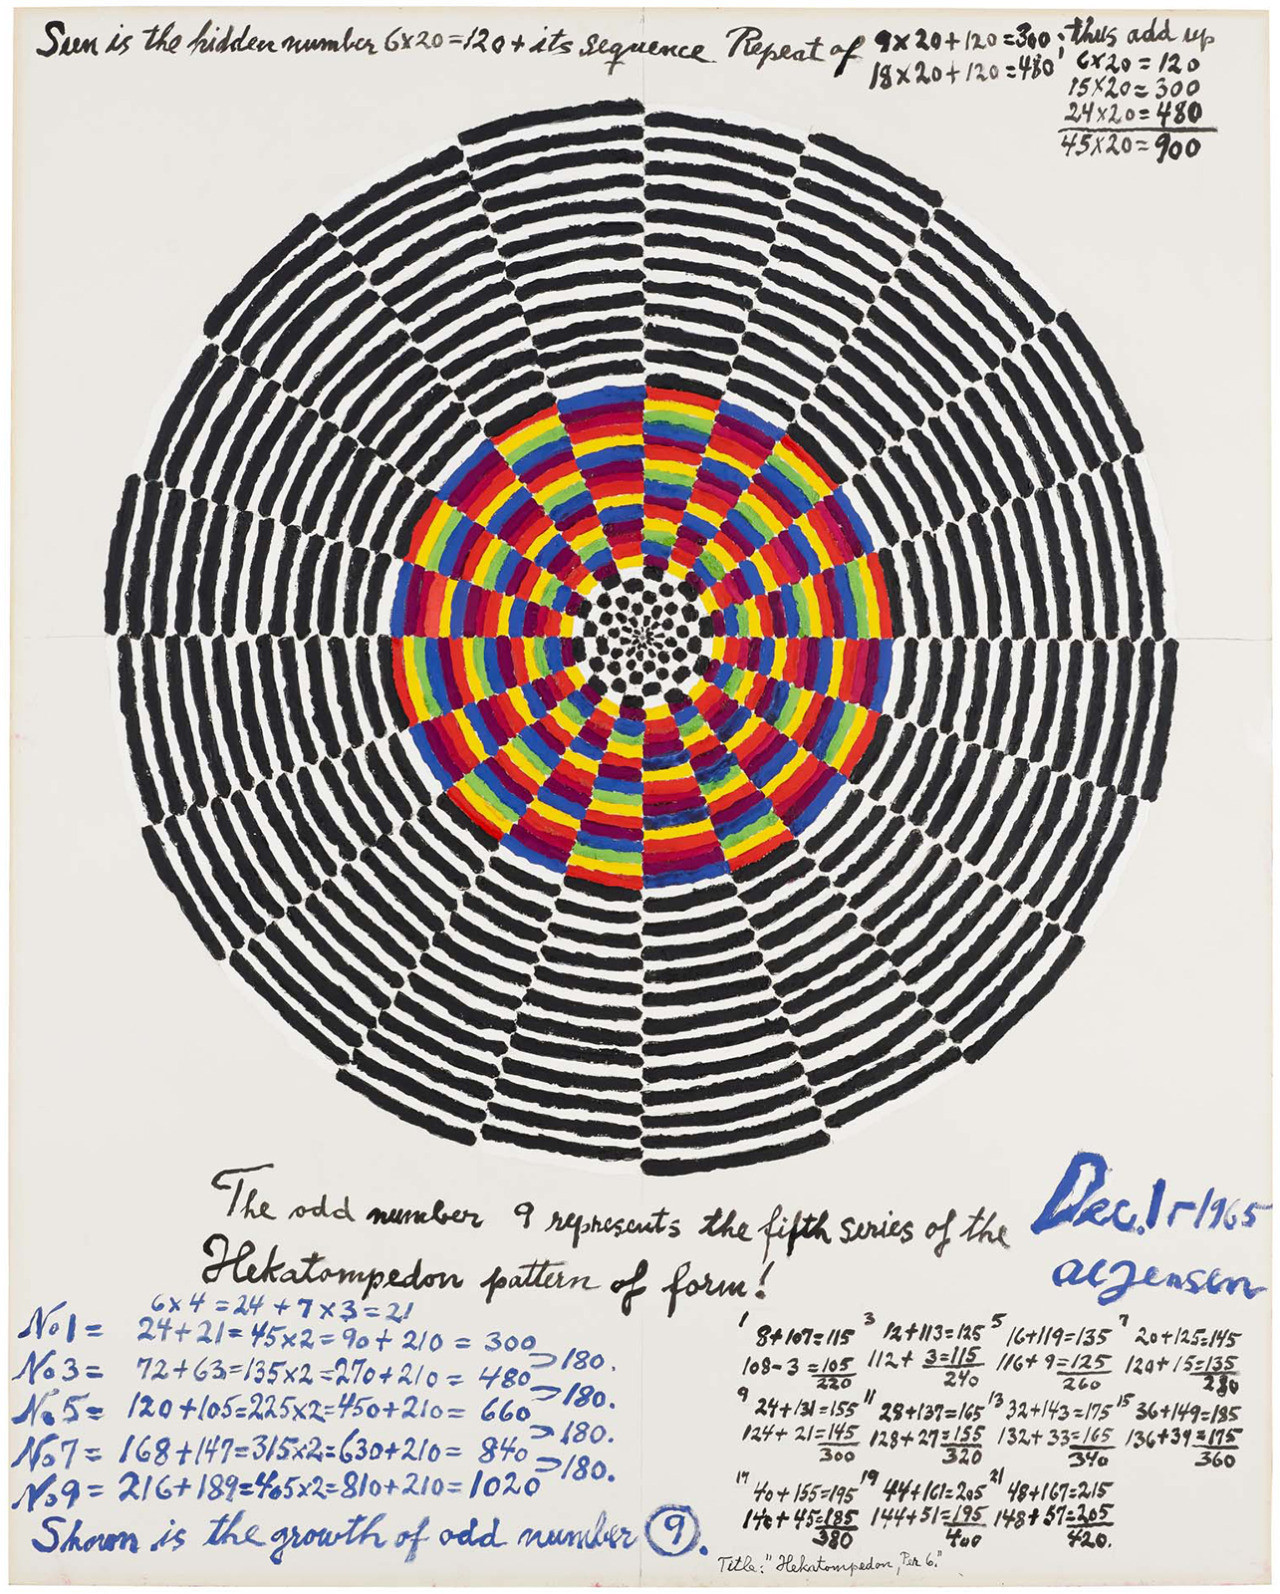 Sun is the hidden number 6x20=120+its sequence. Repeat of 9x20+120=300; thus add up
18x20+120=480' 6x20=120
15x20=300
24x20=480
45x20=900
The odd number 9 represents the fifth series of the
Hekatompedon pattern of form!
Dec.15-1965
al Jensen
6x4=24+7x3=21
No1= 24+21=45x2=90+210=300
>180.
No3= 72+63=135x2=270+210=480
>180.
No.5= 120+105=225x2=450+210=660
>180.
No7= 168+147=315x2=630+210=840
>180.
No9= 216+189=405x2=810+210=1020
Shown is the growth of odd number 9.
1 8+107=115 3 12+113=125 5 16+119=135 7 20+125=145
108-3=105 112+3=115 116+9=125 120+15=135
220 240 260 280
9 24+131=155 11 28+137=165 13 32+143=175 15 36+149=185
124+21=145 128+27=155 132+33=165 136+39=175
300 320 340 360
17 40+155=195 19 44+161=205 21 48+167=215
140+45=185 144+51=195 148+57=205
380 400 420.
Title: "Hekatompedon, Per 6."